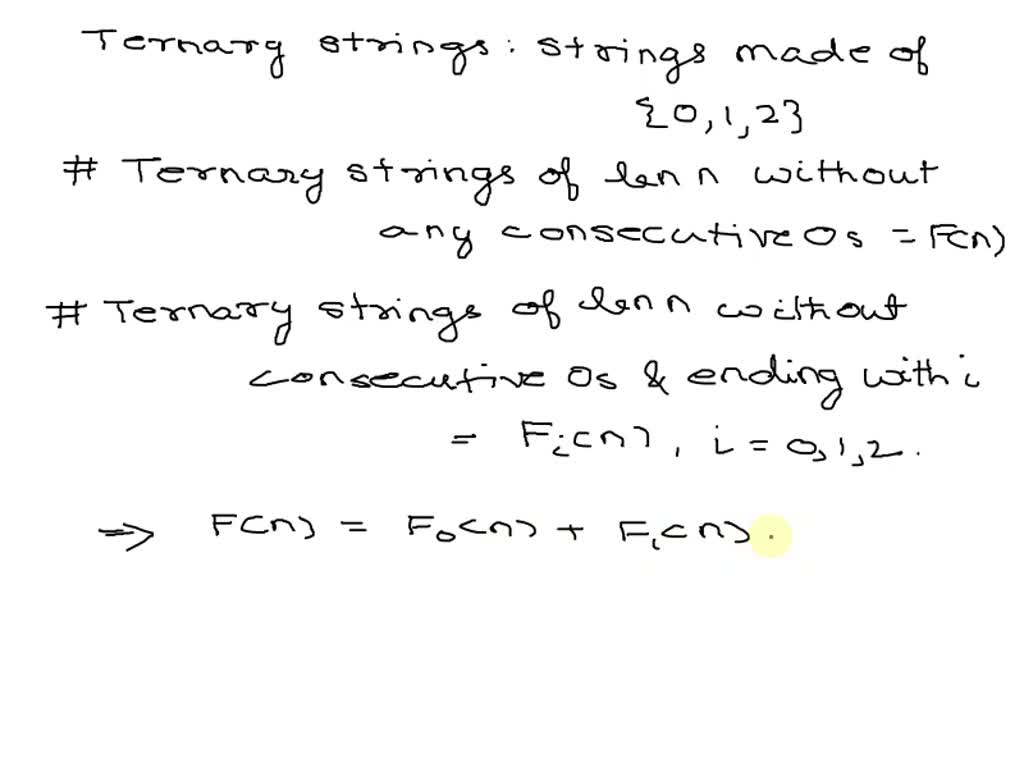 Ternary strings: strings made of
{0,1,2}
# Ternary strings of len n without
any consecutive 0s = F(n)
# Ternary strings of len n without
consecutive 0s & ending with i
= Fᵢ(n), i = 0,1,2.
⇒ F(n) = F₀(n) + F₁(n)